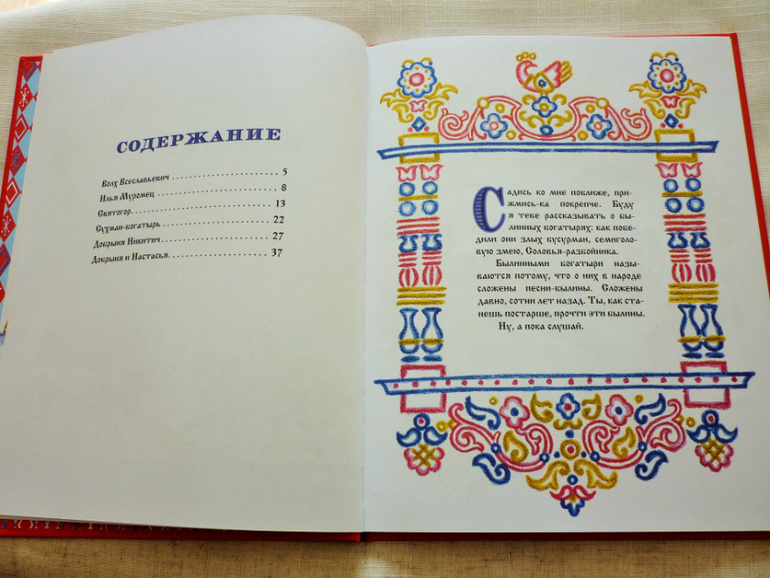 СОДЕРЖАНИЕ
Волх Всеславьевич 5
Илья Муромец 8
Святогор 13
Сухман-богатырь 22
Добрыня Никитич 27
Добрыня и Настасья 37
Садись ко мне поближе, при-
жмись-ка покрепче. Буду
я тебе рассказывать о бы-
линных богатырях: как побе-
дили они злых бусурман, семиголо-
вую змею, Соловья-разбойника.
Былинными богатыри назы-
ваются потому, что о них в народе
сложены песни-былины. Сложены
давно, сотни лет назад. Ты, как ста-
нешь постарше, прочти эти былины.
Ну, а пока слушай.